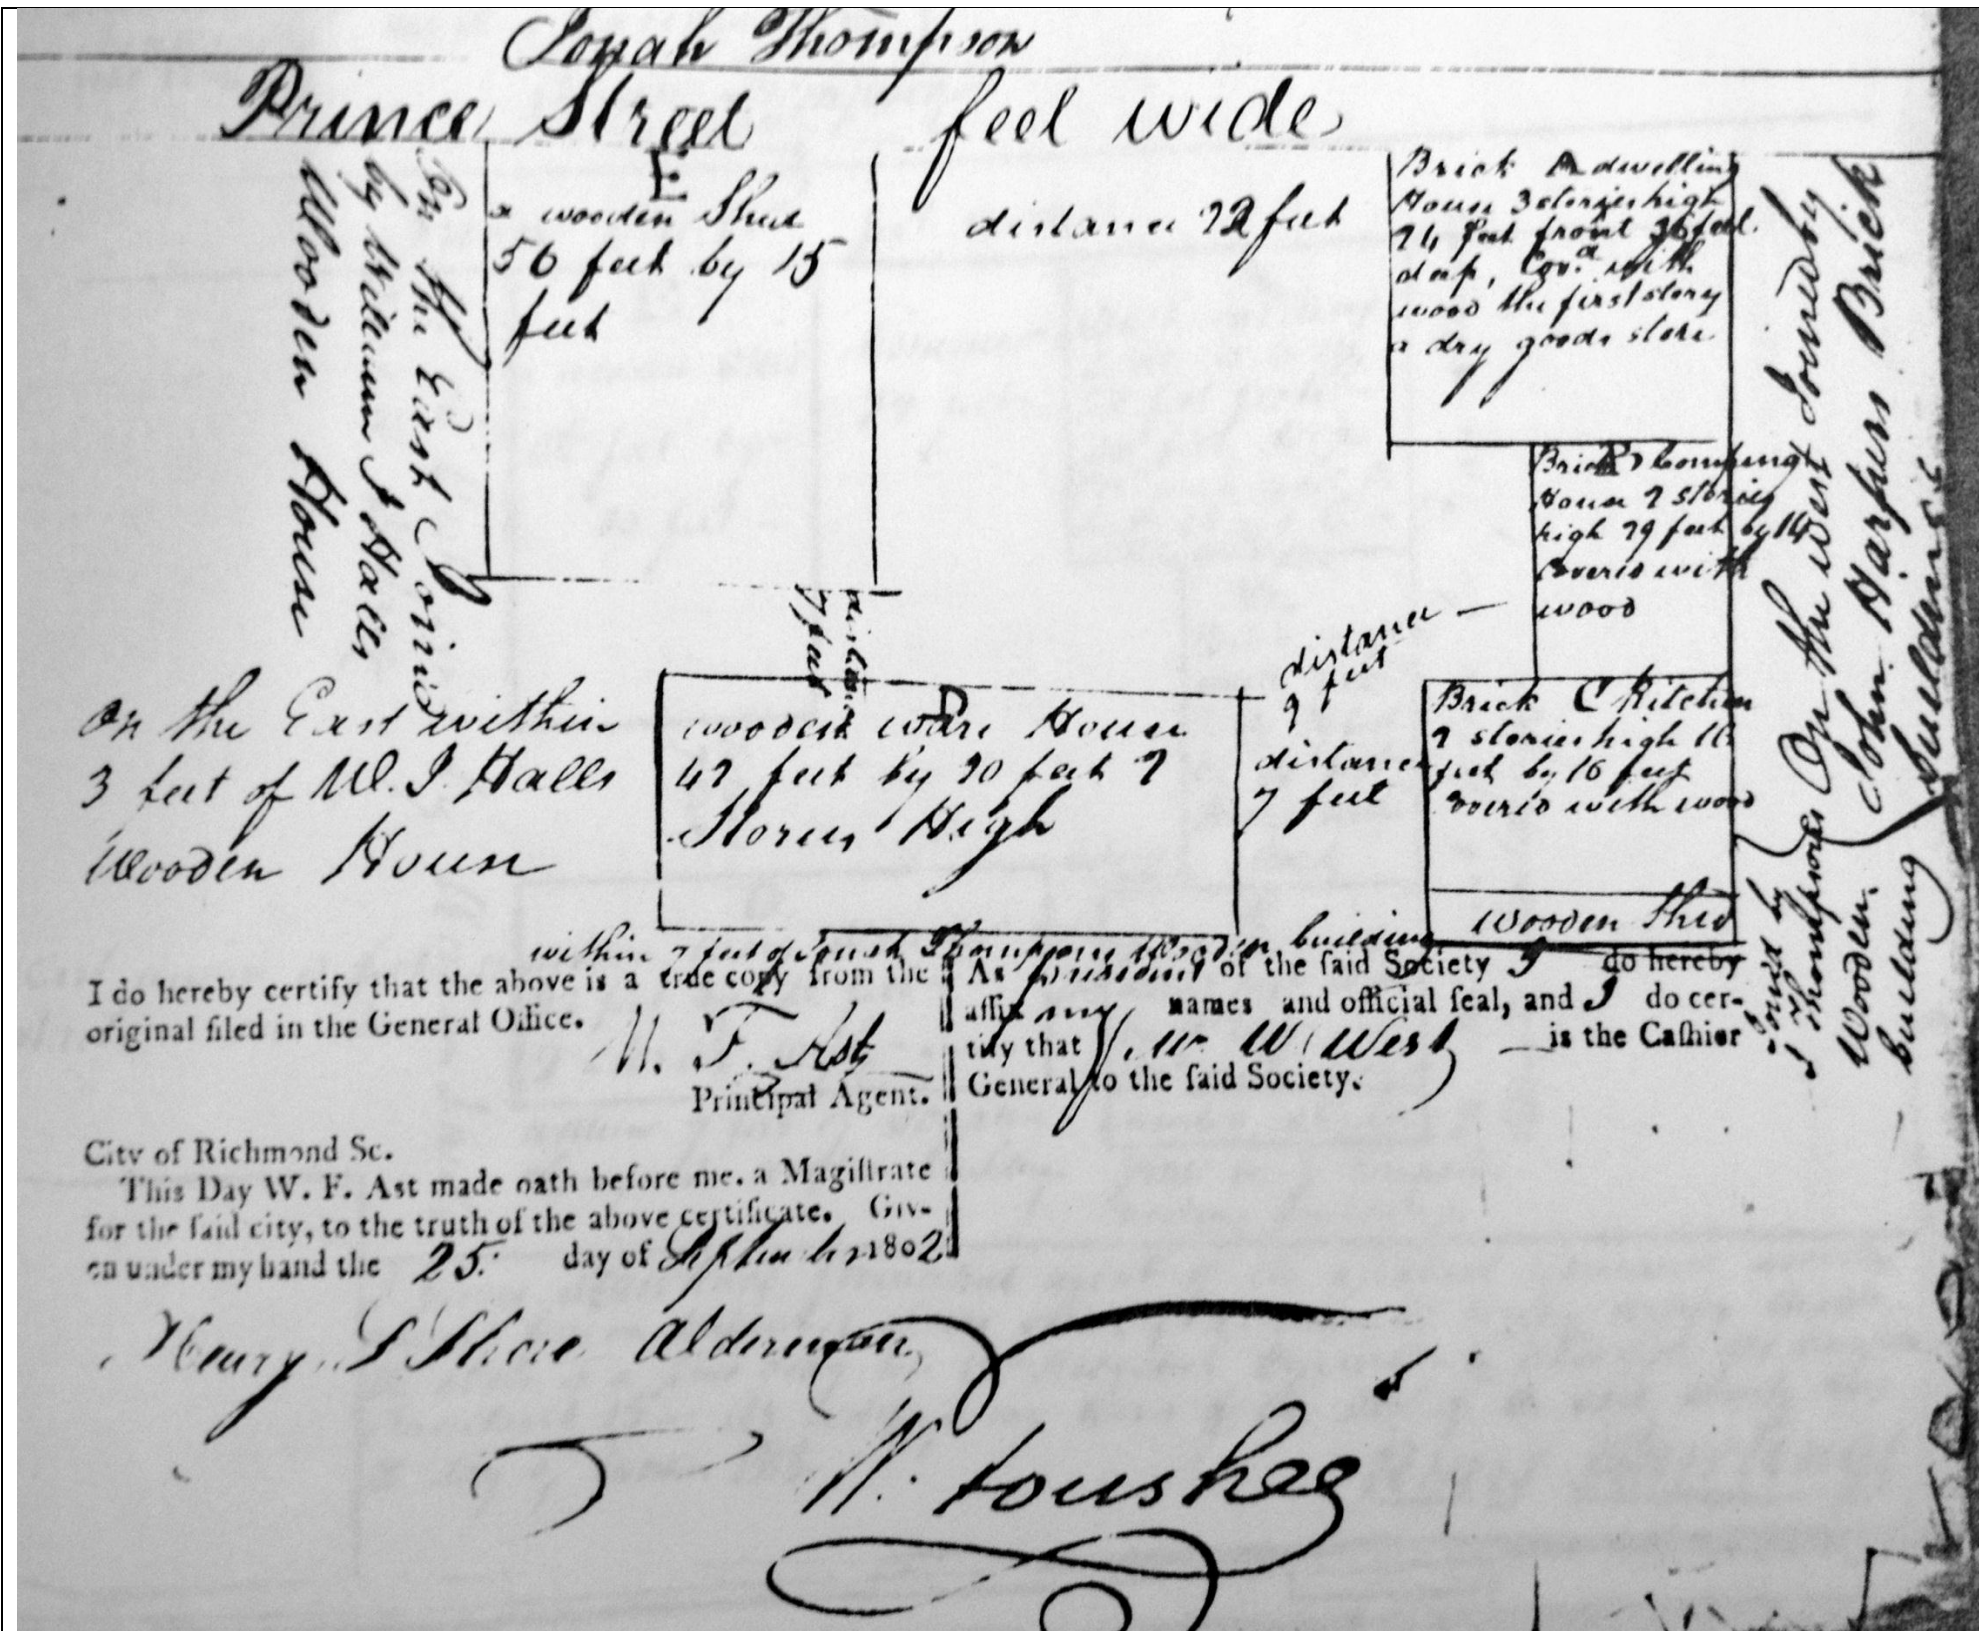 Jonah Thompson
Prince Street feet wide
E
a wooden Shed
56 feet by 15
feet
distance 22 feet
Brick A dwelling
House 3 stories high
24 feet front 36 feet
deep, Cov.d with
wood the first story
a dry goods store
On the East Joined
by William I Halls
Wooden House
Brick B Compting
House 2 stories
high 29 feet by 14
Covered with
wood
On the west Joined by
John Harpers Brick
buildings
distance
7 feet
distance
9 feet
On the East within
3 feet of W. I. Halls
Wooden House
D
wooden ware House
42 feet by 20 feet 2
Stories High
distance
7 feet
Brick C Kitchen
2 stories high 16
feet by 16 feet
Covered with wood
Wooden Shed
Joined by
J Thompsons
Wooden
building
within 7 feet of Jonah Thompsons Wooden building
I do hereby certify that the above is a true copy from the
original filed in the General Office.
W. F. Ast
Principal Agent.
As president of the ſaid Society I do hereby
affix my names and official ſeal, and I do cer-
tify that W. West is the Caſhier
General to the ſaid Society.
City of Richmond Sc.
This Day W. F. Ast made oath before me, a Magiſtrate
for the ſaid city, to the truth of the above certificate. Giv-
en under my hand the 25. day of September 1802
Henry S Shore Alderman
W. Foushee